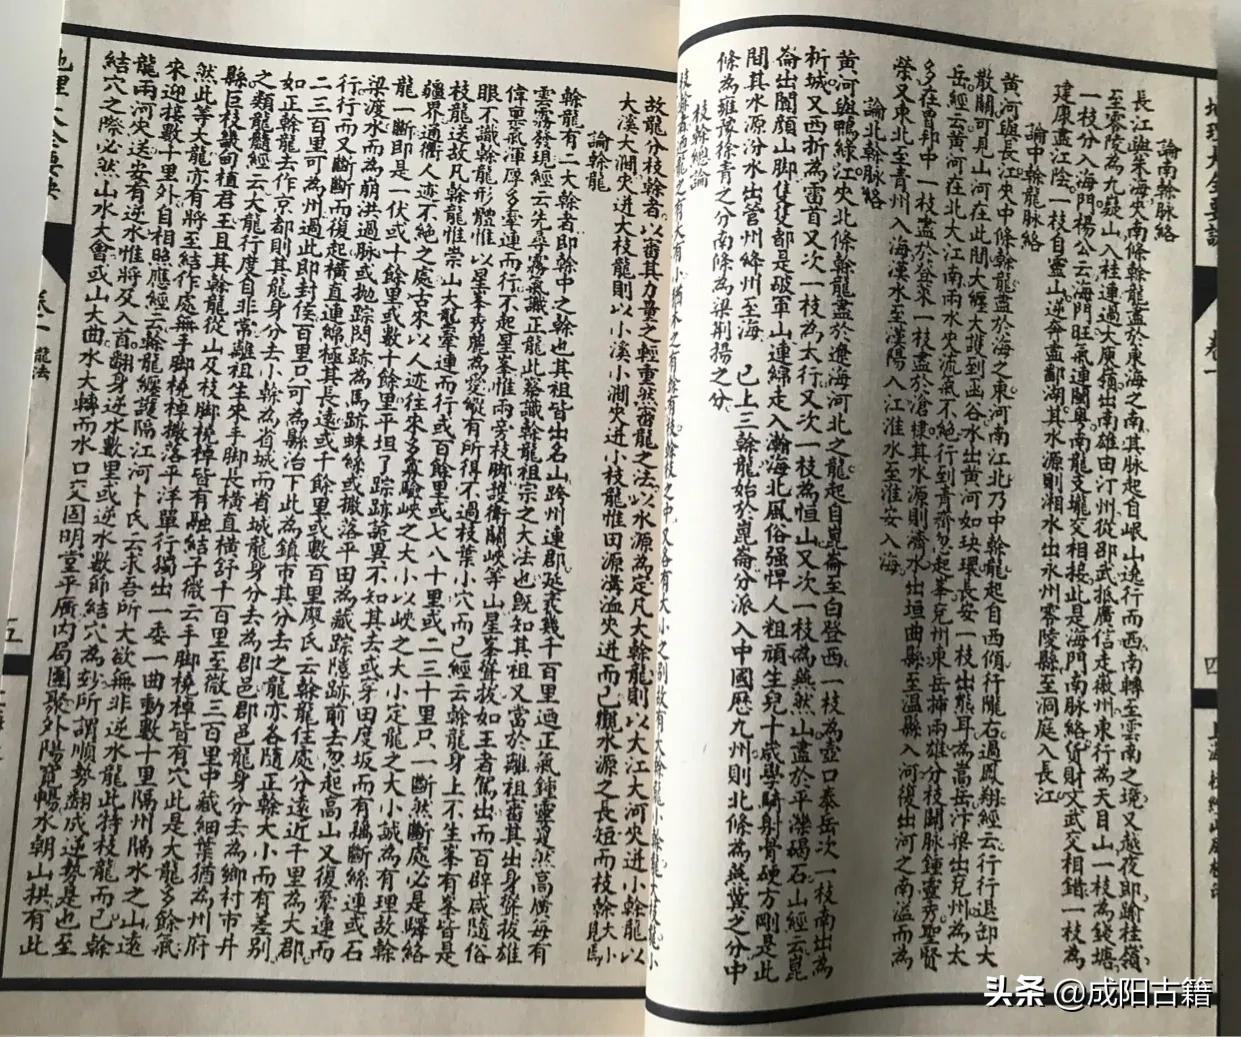 論南幹脉絡
長江與朱海夾南條幹龍盡於東海之南其脉起自岷山遶行而西南轉至雲南之境又越夜郎踰桂嶺
至零陵為九嶷山入桂連過大庾嶺出南雄由汀州從邵武抵廣信走徽州東行為天目山一枝為錢塘
一枝分入海門楊公云海門旺氣連閩粤南龍支壠交相接此是海門南脉絡貨財文武交相錯一枝為
建康盡江陰一枝自靈山逆奔盡鄱湖其水源則湘水出永州零陵縣至洞庭入長江
論中幹龍脉絡
黃河與長江夾中條幹龍盡於海之東河南江北乃中幹龍起自西傾行隴右過鳳翔經云行行退卸大
散關可見山河在此間大纏大護到函谷水出黃河如玦環長安一枝出熊耳為嵩岳汴梁出兗州為太
岳經云黃河在北大江南兩水夾流氣不絕行到青齊忽起峯兗州東岳插兩雄分枝闢脉鍾靈秀聖賢
多在曾邦中一枝盡於登萊一枝盡於滄棣其水源則濟水出垣曲縣至溫縣入河復出河之南溢而為
滎又東北至青州入海漢水至漢陽入江淮水至淮安入海
論北幹脉絡
黃河與鴨綠江夾北條幹龍盡於遼海河北之龍起自崑崙至白登西一枝為壺口泰岳次一枝南出為
析城又西折為雷首又次一枝為太行又次一枝為恒山又次一枝為燕然山盡於平灤碣石山經云崑
崙出闔顏山脚隻隻都是破軍山連綿走入瀚海北風俗强悍人粗頑生兒十歲學騎射骨硬方剛是此
間其水源汾水出管州絳州至海 已上三幹龍始於崑崙分派入中國歷九州則北條為燕冀之分中
條為雍豫徐青之分南條為梁荆揚之分
枝幹總論
故龍分枝幹者以審其力量之輕重然審龍之法以水源為定凡大幹龍則以大江大河夾迸小幹龍以
大溪大澗夾迸大枝龍則以小溪小澗夾迸小枝龍惟田源溝洫夾迸而已觀水源之長短而枝幹大小
論幹龍
幹龍有二大幹者即幹中之幹也其祖皆出名山跨州連郡延袤幾千百里迺正氣鍾靈是然高廣每有
雲霧發現經云先尋霧氣識正龍此察識幹龍祖宗之大法也旣知其祖又當於離祖審其出身聳拔雄
偉星氣渾厚多牽連而行不起星峯惟兩旁枝脚護衛關峽等山星峯聳拔如王者駕出而百辟咸隨俗
眼不識幹龍形體惟以星峯秀麗為愛縱有所得不過枝葉小穴而已經云幹龍身上不生峯有峯皆是
枝龍送故凡幹龍惟崇山大龍牽連而行或百餘里或七八十里或二三十里只一斷然斷處必是驛絡
疆界通衢人迹不絕之處古來以人迹往來多寡驗峽之大小以峽之大小定龍之大小誠為有理故幹
龍一斷即是一伏或十餘里或數十餘里平坦了踪跡詭異不知其去或穿田度坂而有藕斷絲連或石
梁渡水而為崩洪過脉或抛踪閃跡為馬跡蛛絲或撒落平田為藏踪隱跡前去忽起高山又復牽連而
行行而又斷斷而復起橫直連綿極其長遠或千餘里或數百里廖氏云幹龍住處分遠近千里為大郡
二三百里可為州過此即封侯百里只可為縣治下此為鎮市其分去之龍亦各隨正幹大小而有差別
如正幹龍去作京都則其龍身分去小幹為省城而省城龍身分去為郡邑郡邑龍身分去為鄉村市井
之類龍髓經云大龍行度自非常離祖生來手脚長橫直橫舒千百里至微三百里中藏細葉猶為州府
縣巨枝畿甸植君王且其幹龍從山及枝脚橈棹皆有融結子微云手脚橈棹皆有穴此是大龍多餘氣
然此等大龍亦有將至結作處無手脚橈棹撒落平洋單行獨出一委一曲動數十里隔州隔水之山遠
來迎接數十里外自相照應經云幹龍纏護隔江河卜氏云求吾所大欲無非逆水龍此特枝龍而已幹
龍兩河夾送安有逆水惟將及入首翻身逆水數里或逆水數節結穴為妙所謂順勢翻成逆勢是也至
結穴之際必然山水大會或山大曲水大轉而水口交固明堂平廣內局團聚外陽寬暢水朝山拱有此
卷一 龍法
五
四
头条 @成阳古籍